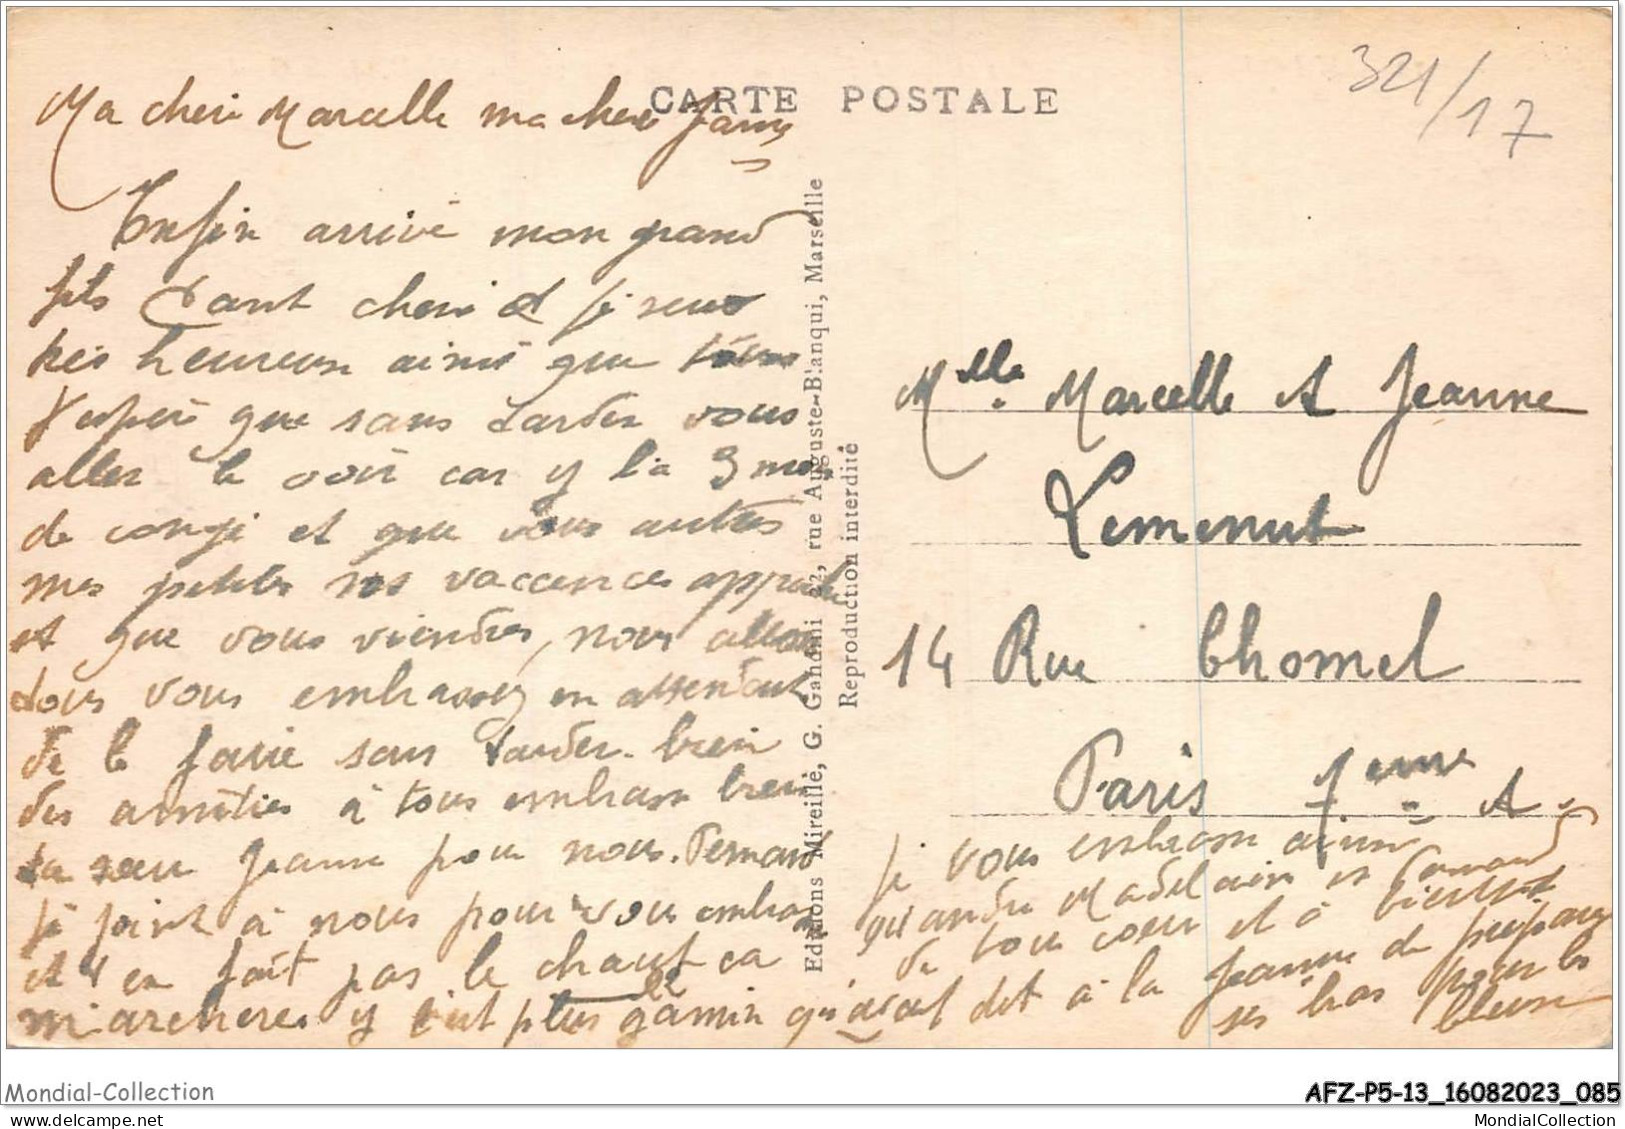 CARTE POSTALE
321/17
Ma cheri Marcelle ma cheri
Enfin arrivé mon grand
fils tant cheri et je seus
heureuse ainsi que tous
J'esperè que sans tarder vous
aller le voir car y l'a 3 mois
de conge et que vous autres
mes petites vos vaccences approche
et que vous viendres, nous allon
tous vous embrassez en attendant
de le faire sans tarder. bien
des amities à tous embrasse bien
ta sœur Jeanne pour nous. Fernand
se joint à nous pour vous embrasse
et s'en fait pas le chaut ca
marchere y l'est plus gamin qu'avant dit à la Jeanne de prepare
ses bras pour les
Je vous embrasse ainsi
qu'andre Madelaine et Fernand
de tout coeur et à bientot
Editions Mireille, G. Gandini 22, rue Auguste-Blanqui, Marseille
Reproduction interdite
Melle. Marcelle et Jeanne
Lemenut
14 Rue Chomel
Paris 7eme A.
Mondial-Collection
AFZ-P5-13_16082023_085
Delcampe.net
MondialCollection